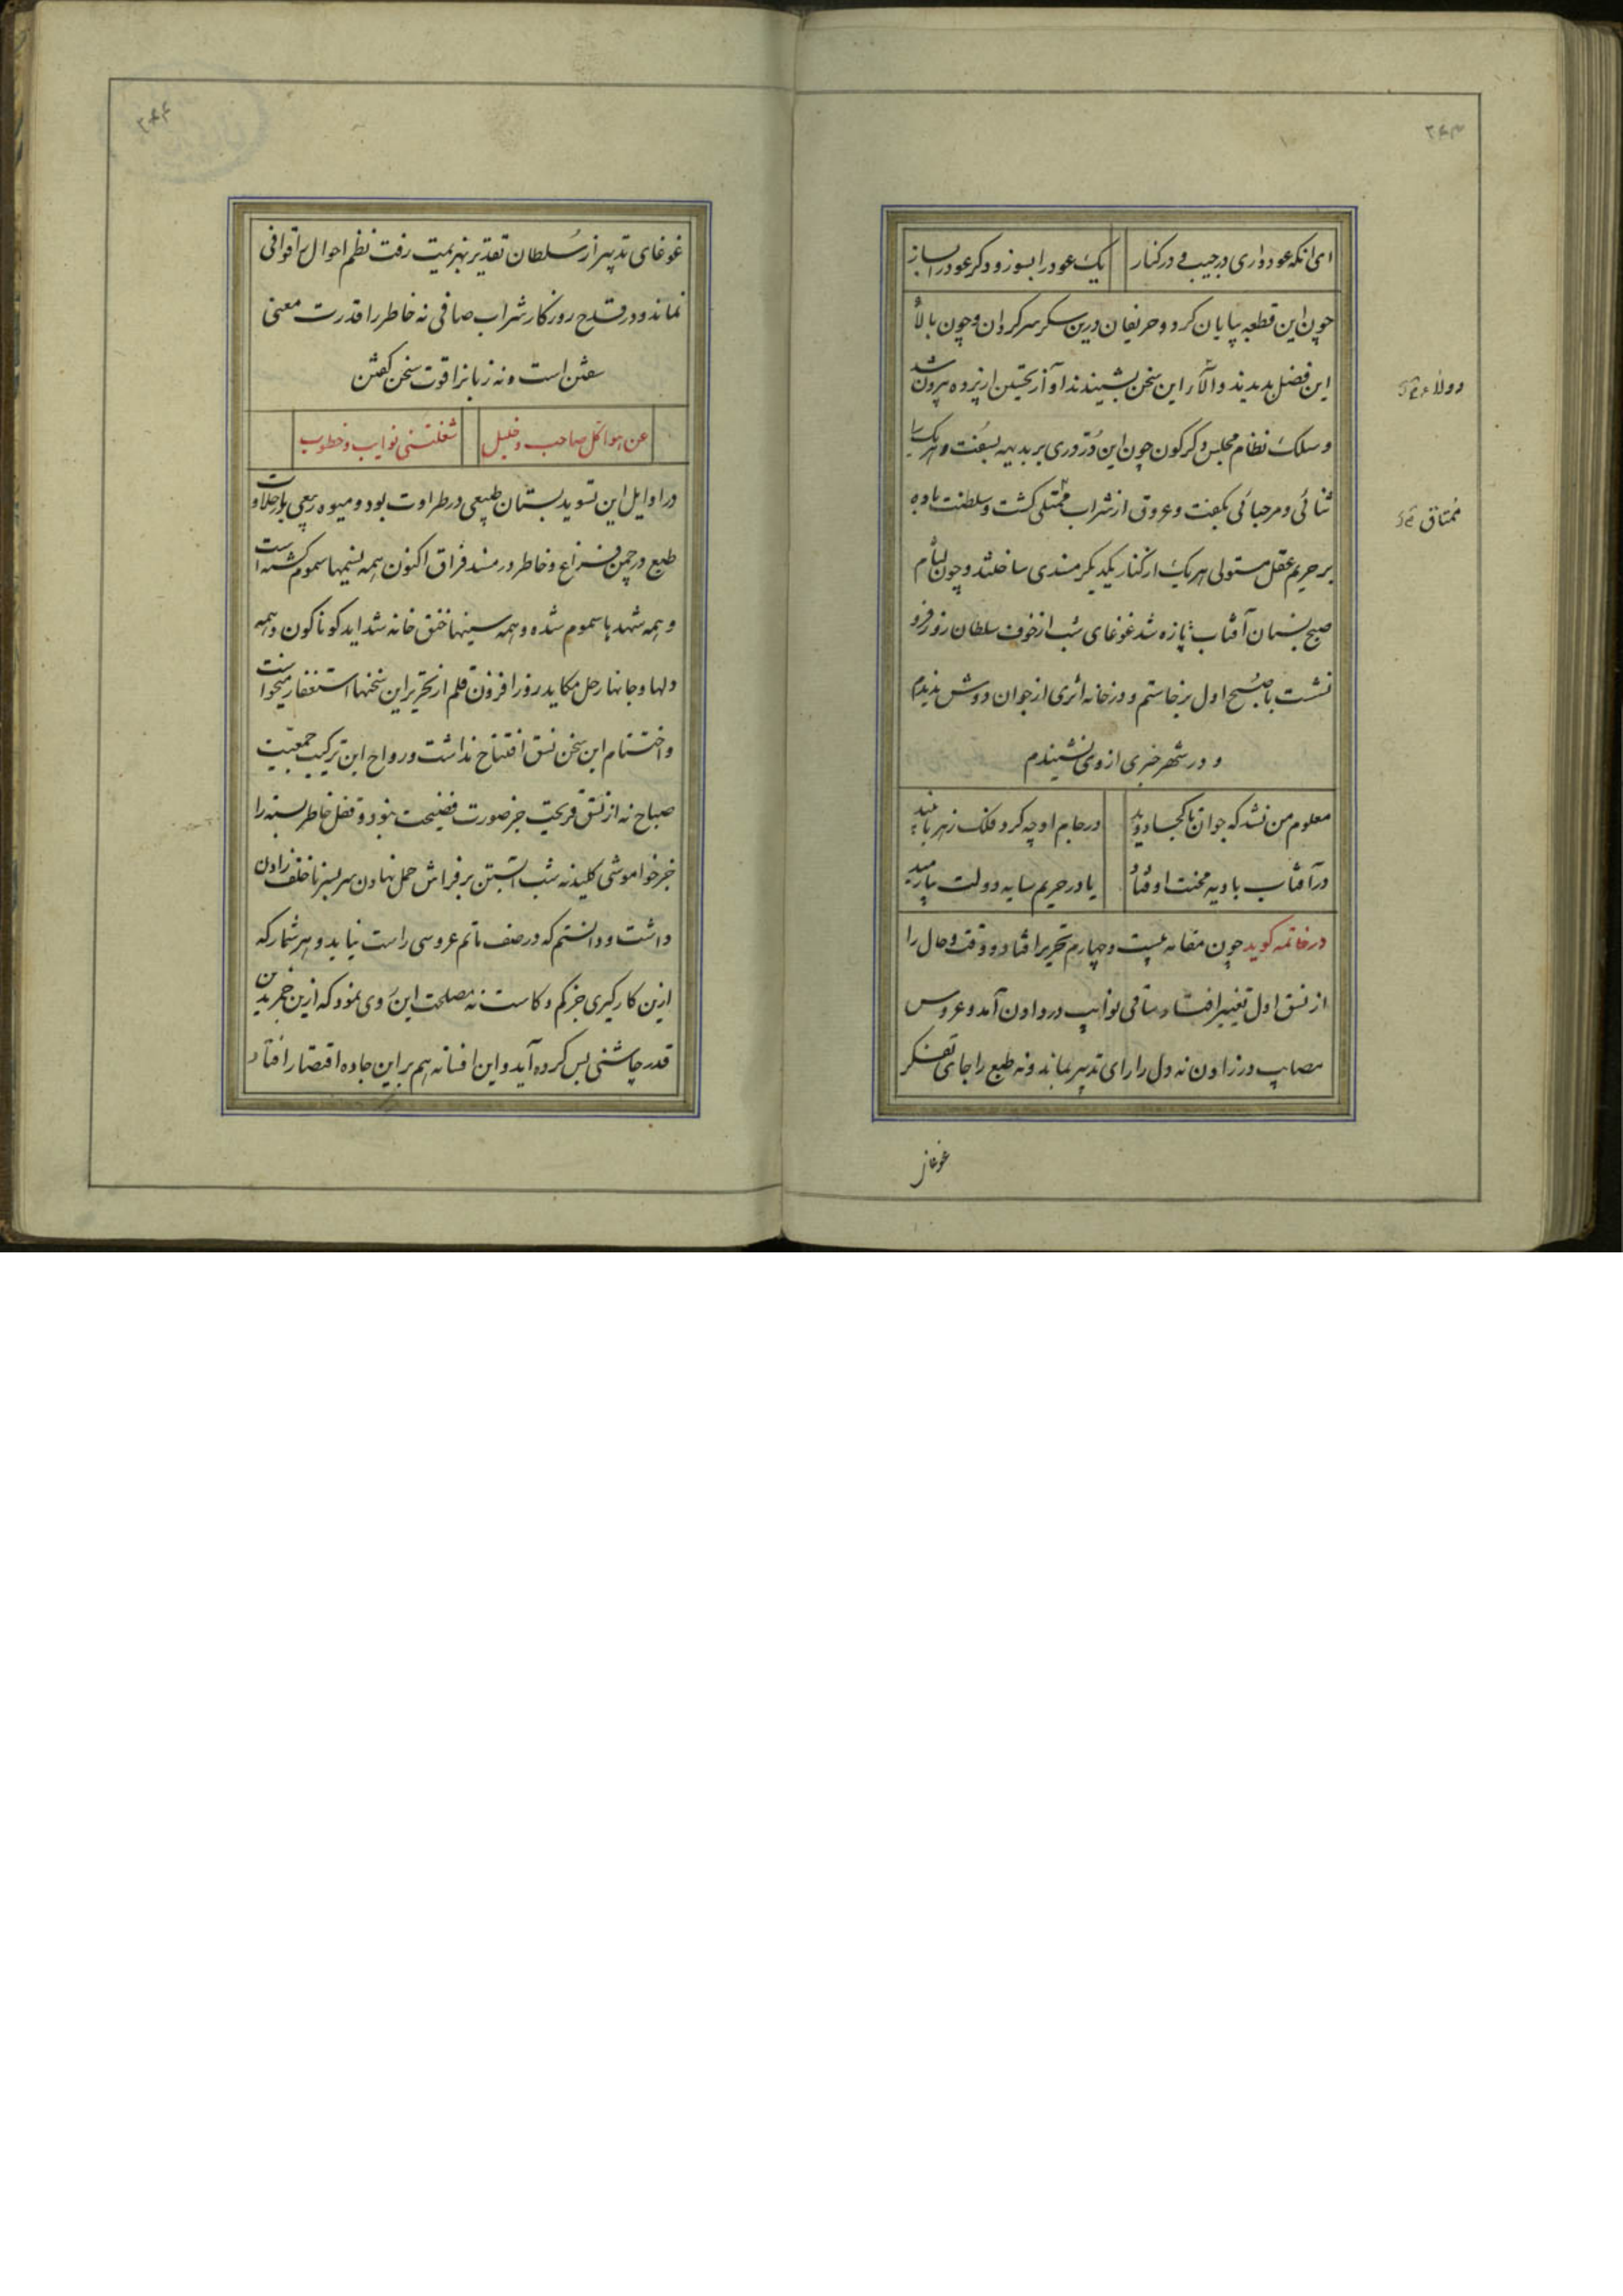 ۲۴۳
ای آنکه عود داری در جیب و در کنار یک عود را بسوز و دگر عود را بساز
چون این قطعه بپایان کرد و حریفان درین سکر سرگردان و چون بالا
این فضل بدیدند و الآر این سخن بشنیدند آواز تحسین از پرده بیرون شد
و سلک نظام مجلس دگرگون چون این دُرّ دری بر بدیهه بسفت و هر یک را
ثنائی و مرحبائی بگفت و عروق از شراب ممتلی گشت و سلطنت باده
بر حریم عقل مستولی هر یک از کنار یکدیگر مسندی ساختند و چون لثام
صبح بستان آفتاب تازه شد غوغای شب از خوف سلطان روز فرو
نشست با صبح اول برخاستم و در خانه اثری از جوان دوش ندیدم
و در شهر خبری از وی نشنیدم
معلوم من نشد که جوان تا کجا دوید در جام او چه کرد فلک زهر یا نبید
در آفتاب بادیه محنت اوفتاد یا در حریم سایه دولت بیارمید
در خاتمه گوید چون مقامه بیست و چهارم تحریر افتاد و وقت و حال را
از نسق اول تغییر افتاد ساقی نوایب درد دادن آمد و عروس
مصایب در زادن نه دل را رای تدبیر ماند و نه طبع را جای تفکر
دولاء
ممتاق
غوغای
۲۴۴
غوغای تدبیر از سُلطان تقدیر بهزیمت رفت نظم احوال را قوافی
نماند و در قدح روزگار شراب صافی نه خاطر را قدرت معنی
سفتن است و نه زبانرا قوت سخن گفتن
شغلتنی نوایب و خطوب عن هوا کل صاحب و خلیل
در اوایل این تسوید بستان طبیعی در طراوت بود و میوه ربیعی با حلاوت
طبع در چمن فراغ و خاطر در مسند فراق اکنون همه نسیمها سموم گشته است
و همه شهدها سموم شده و همه سینها خنق خانه شداید گوناگون و همه
دلها و جانها رحل مکاید روز افزون قلم از تحریر این سخنها استغفار میخواست
و اختتام این سخن نسق افتتاح نداشت و رواح این ترکیب جمعیّت
صباح نه از نسق قریحت جز صورت فضیحت بود و قفل خاطر بسته را
جز خواموشی کلید نه شب آبستن بر فراش حمل نهادن سر بسر ناخلف زادن
داشت و دانستم که در صف ماتم عروسی راست نیاید و هر شمار که
ازین کار گیری جز کم و کاست نه مصلحت این روی نمود که ازین خم بدین
قدر چاشنی بس کرده آید و این افسانه هم بر این جاده اقتصار افتاد